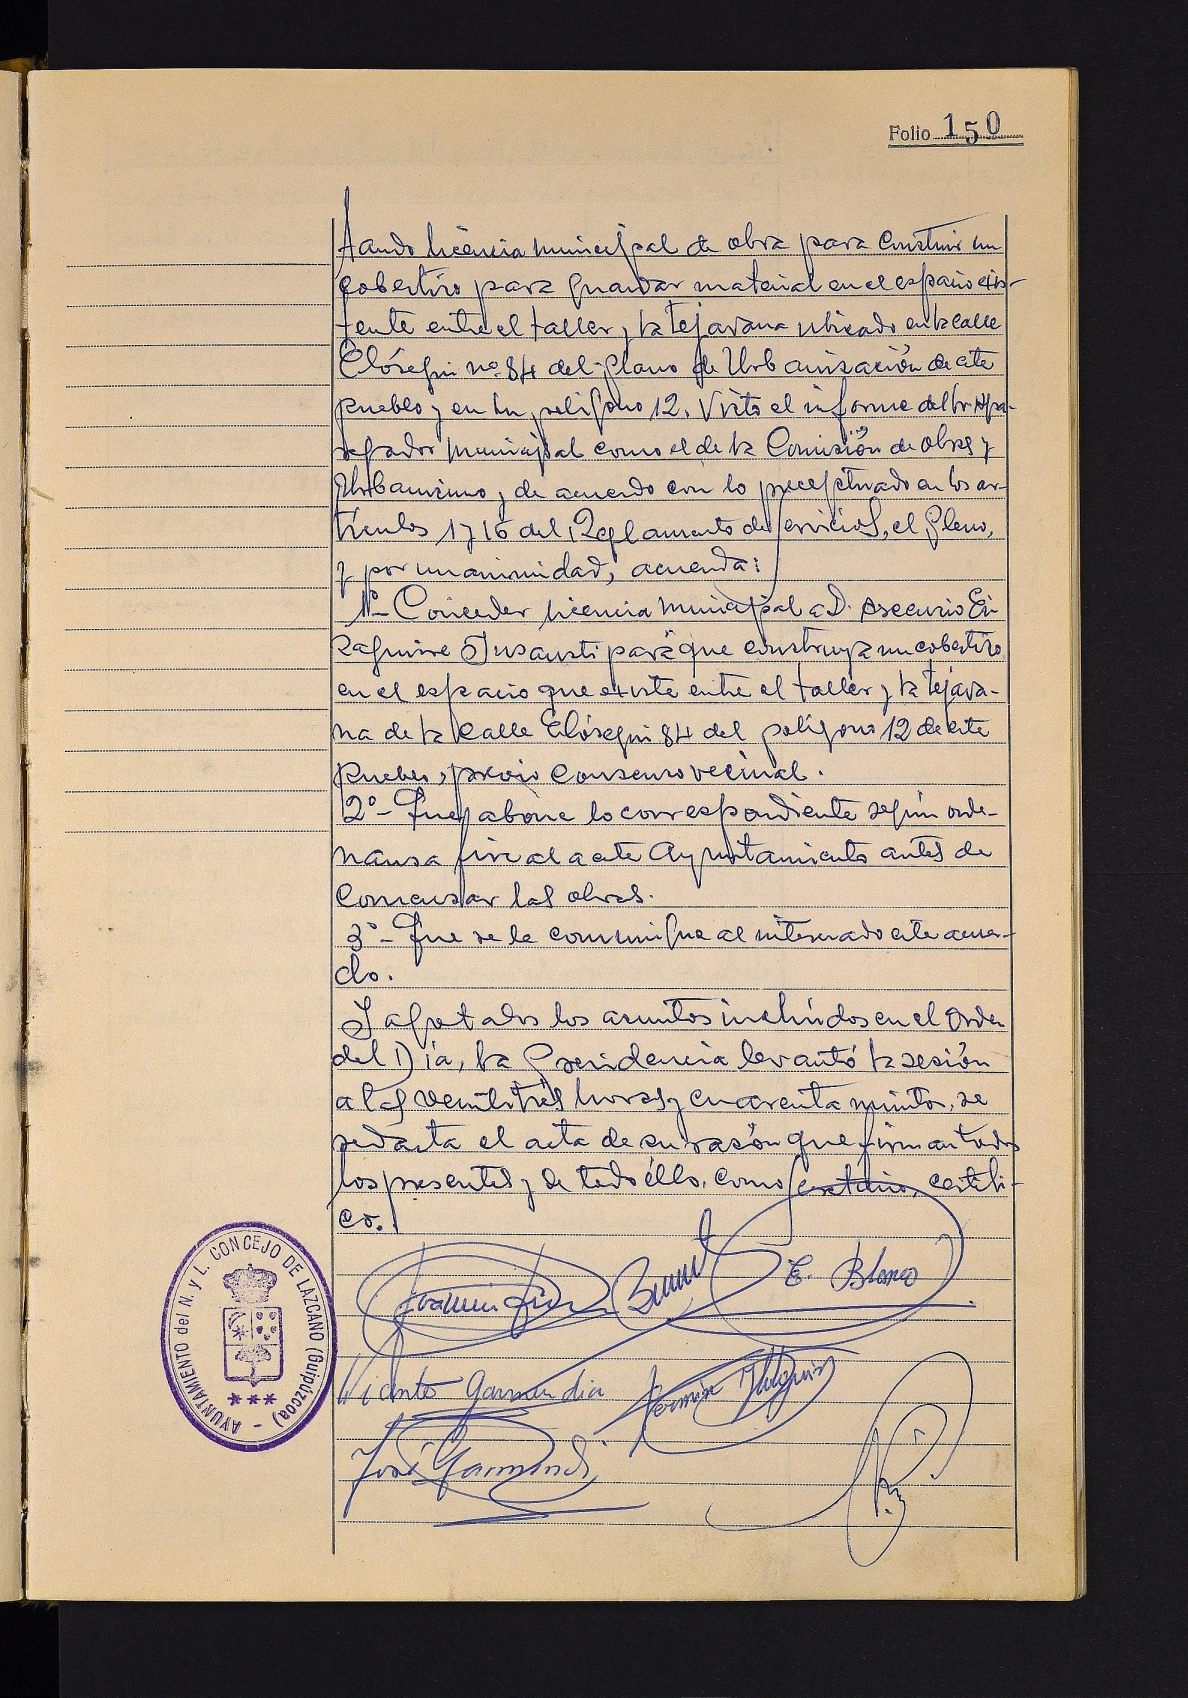 Folio 150
tando licencia municipal de obra para construir un
cobertizo para guardar material en el espacio exis-
tente entre el taller y la tejavana ubicado en la calle
Elósegui nº 84 del plano de Urbanización de este
pueblo y en su polígono 12. Visto el informe del Sr. Apa-
rejador Municipal como el de la Comisión de obras y
Urbanismo y de acuerdo con lo preceptuado en los ar-
tículos 1 y 16 del Reglamento de Servicios, el Pleno,
y por unanimidad, acuerda:
1º- Conceder licencia municipal a D. Ascensio Ei-
zaguirre Insausti para que construya un cobertizo
en el espacio que existe entre el taller y la tejava-
na de la calle Elósegui 84 del polígono 12 de este
pueblo, previo consenso vecinal.
2º- Que abone lo correspondiente según orde-
nansa fiscal a este Ayuntamiento antes de
comensar las obras.
3º- Que se le comunique al interesado este acuer-
do.
Y agotados los asuntos incluídos en el Orden
del Día, la Presidencia levantó la sesión
a las veintitrés horas y cuarenta minutos, se
redacta el acta de su rasón que firman todos
los presentes y de todo éllo, como Secretario, certifi-
co.
E. Blanco
Vicente Garmendia
José Garmendi
AYUNTAMIENTO del N. y L. CONCEJO DE LAZCANO (Guipúzcoa)